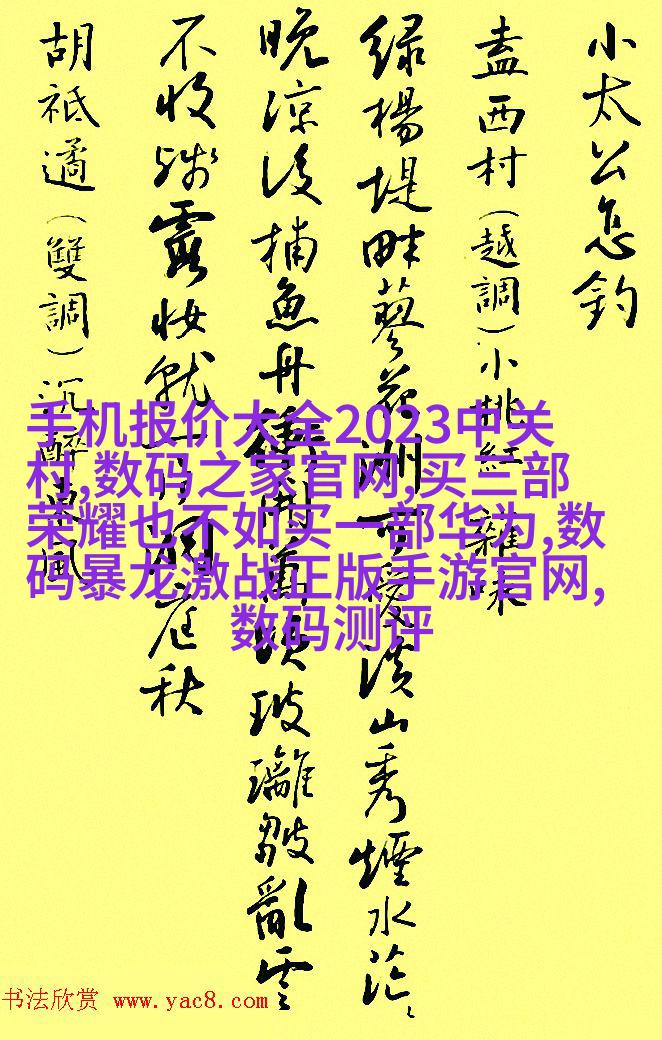 小太公怎釣
盍西村（越調）小桃紅 雜咏
綠楊堤畔蓼花洲可愛溪山秀煙水茫ミ
晚涼後捕魚舟衝開萬頃玻璃皺亂雲
不收殘霞妝就一片洞庭秋
胡祗遹（雙調）沉醉東風
手机报价大全2023中关
村,数码之家官网,买三部
荣耀也不如买一部华为,数
码暴龙激战正版手游官网,
数码测评
书法欣赏 www.yac8.com